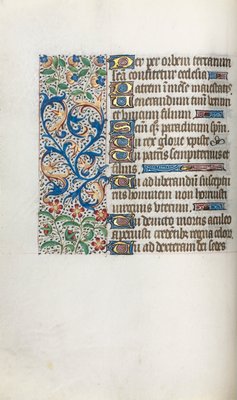 Per orbem terrarum
sca confitetur ecclesia
Patrem immẽse maiestatis
Venerandum tuũ verum
et vnicum filium
Scm quoq paraclitum spm
Tu rex glorie xpiste
Tu patris sempiternus es
filius
Tu ad liberandũ suscepturus
hominem non horruisti
virginis vterum
Tu deuicto mortis aculeo
aperuisti credẽtib regna celor
Tu ad dexteram dei sedes